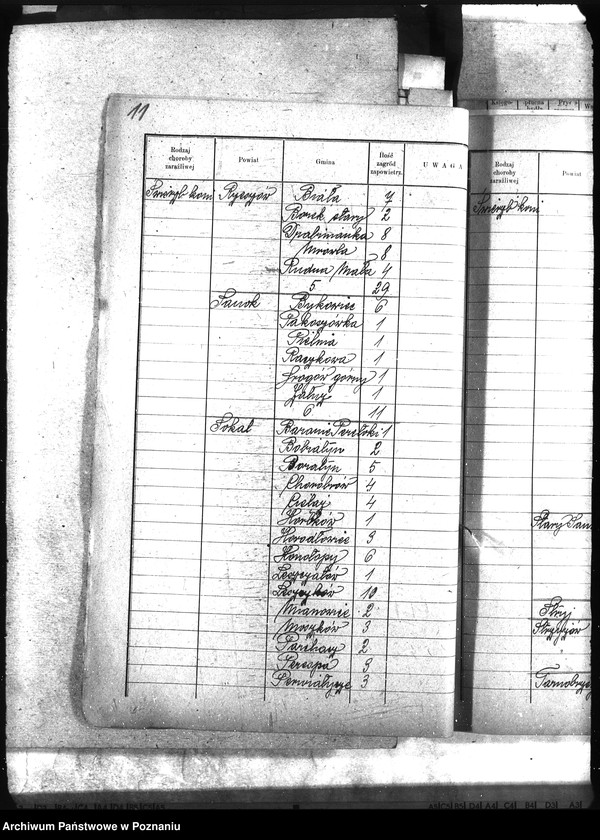 11
Rodzaj choroby zaraźliwej Powiat Gmina Ilość zagród zapowietrz. UWAGA
Świerzb koni Rzeszów Biała 7
Borek stary 2
Drabinianka 8
Mrowla 8
Rudna Mała 4
5 29
Sanok Bykowce 6
Pakoszówka 1
Pielnia 1
Raczkowa 1
Srogów górny 1
Załuż 1
6 11
Sokal Baranie Peretoki 1
Bobiatyn 2
Boratyn 5
Chorobrów 4
Cieląż 4
Horbków 1
Horodłowice 3
Konotopy 6
Leszczatów 1
Leszczków 10
Mianowice 2
Moszków 3
Parchacz 2
Perespa 3
Perwiatycze 3
Rodzaj choroby zaraźliwej Powiat
Świerzb koni
Stary Sam
Stryj
Strzyżów
Tarnobrzeg
Archiwum Państwowe w Poznaniu